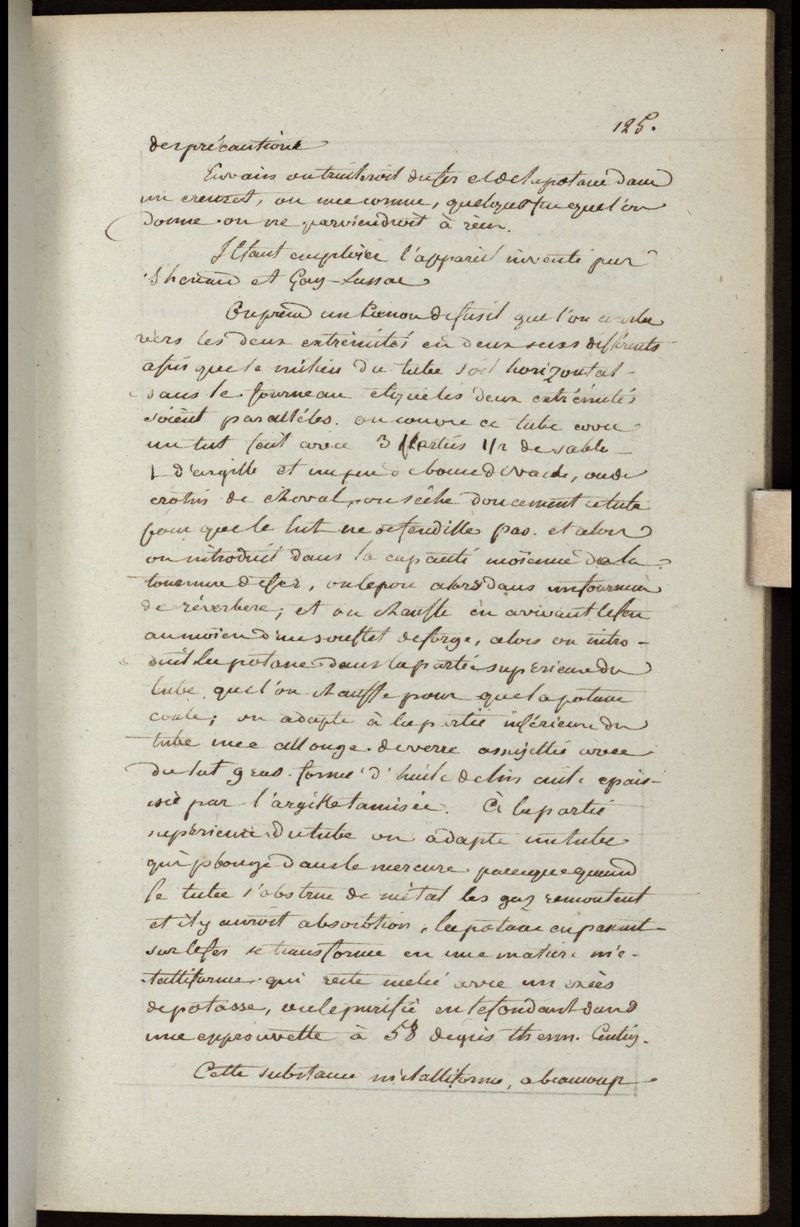 125.
des précautions
En vain on traiteroit du fer et de la potasse dans
un creuset, ou une cornue, quelque feu que l'on
donne on ne parviendroit à rien.
Il faut emploier l'appareil inventé par
Thenard et Gay-Lussac
On prend un canon de fusil que l'on courbe
vers les deux extrémités en deux sens différents
afin que le milieu du tube soit horizontal
dans le fourneau et que les deux extrémités
soient parallèles. on couvre ce tube avec
un lut fait avec 3 parties 1/2 de sable
1 d'argille et un peu de bouze de vache, ou de
crotin de cheval, on sèche doucement ce tube
pour que le lut ne se fendille pas. et alors
on introduit dans la moienne de la
tournure de fer, on le pose alors dans un fourneau
de réverbere; et on chauffe en avivant le feu
au moien d'un soufflet de forge, alors on intro-
duit la potasse dans la partie superieure du
tube que l'on chauffe pour que la potasse
coule; on adapte à la partie inférieure du
tube une allonge de verre assujettie avec
du lut gras formé d'huile de lin cuite epais-
sie par l'argille tamisée. à la partie
supérieure du tube on adapte un tube
qui plonge dans le mercure parceque quand
le tube s'obstrue de métal les gaz remontent
et il y auroit absorbtion, la potasse en passant
sur le fer se transforme en une matiere mé-
talliforme qui reste melé avec un excès
de potasse, on le purifie en le fondant dans
une epprouvette à 58 degrés therm. Centig.
Cette substance métalliforme, a beaucoup